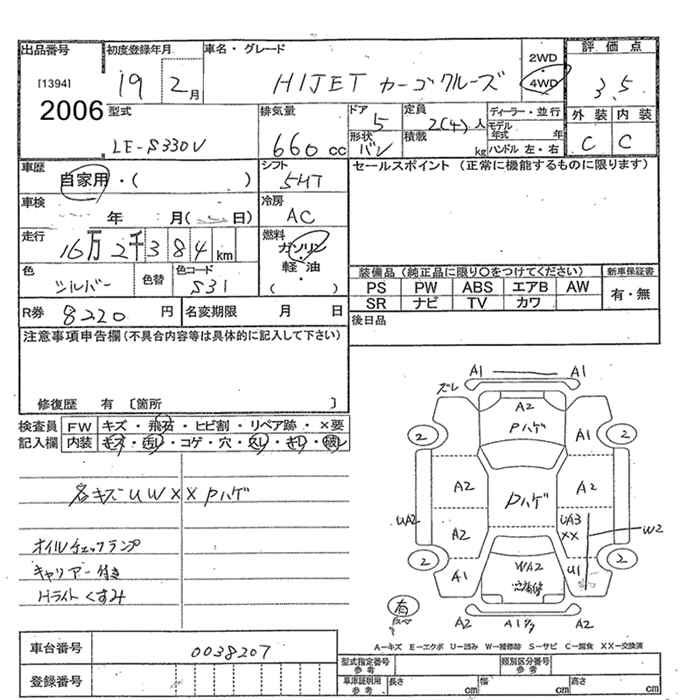 出品番号 初度登録年月 車名・グレード 評価点
[1394] 2006
19 2月
HIJET カーゴクルーズ
2WD
4WD
3.5
型式 LE-S330V
排気量 660cc
ドア 5
形状 バン
定員 2(4)人
積載 kg
ディーラー・並行
モデル年式 年
ハンドル 左・右
外装 内装
C C
車歴 自家用・( )
シフト 5MT
セールスポイント (正常に機能するものに限ります)
車検 年 月( 日)
冷房 AC
走行 16万2千384km
燃料 ガソリン・軽油・( )
色 シルバー 色替 色コード S31
装備品 (純正品に限り○をつけてください) 新車保証書
PS PW ABS エアB AW 有・無
SR ナビ TV カワ
R券 8220円 名変期限 月 日
後日品
注意事項申告欄(不具合内容等は具体的に記入して下さい)
修復歴 有 〔箇所 〕
検査員記入欄
FW キズ・飛石・ヒビ割・リペア跡・×要
内装 キズ・汚レ・コゲ・穴・スレ・キレ・破レ
各キズUWXX Pハゲ
オイルチェックランプ
キャリアー付き
Hライトくすみ
A1 A1
ズレ
A2
Pハゲ
2 A1 2
A2 Pハゲ A2
UA2 A2 UA3 XX W2
A1 WA2 U1
2 2
有
A2 A1 A2
A-キズ E-エクボ U-凹み W-補修跡 S-サビ C-腐食 XX-交換済
車台番号 0038207
登録番号
型式指定番号 参考 類別区分番号 参考
車庫証明用 参考 長さ cm 幅 cm 高さ cm